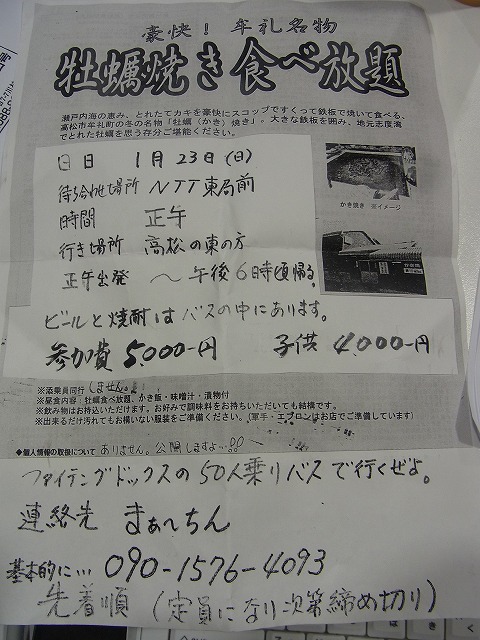 豪快！牟礼名物
牡蠣焼き食べ放題
瀬戸内海の恵み、とれたてカキを豪快にスコップですくって鉄板で焼いて食べる、
高松市牟礼町の冬の名物「牡蠣（かき）焼き」。大きな鉄板を囲み、地元志度湾
でとれた牡蠣を思う存分ご堪能ください。
日日 1月23日(日)
待ち合わせ場所 NTT東局前
時間 正午
行き場所 高松の東の方
正午出発 〜午後6時頃帰る。
かき焼き ※イメージ
ビールと焼酎はバスの中にあります。
参加費 5,000-円 子供 4,000-円
※添乗員同行しません。
※昼食内容：牡蠣食べ放題、かき飯・味噌汁・漬物付
※飲み物はお持込いただけます。お好みで調味料をお持ちいただいても結構です。
※出来るだけ汚れてもお構いない服装をご準備ください。（軍手・エプロンはお店でご準備しています）
◆個人情報の取扱について ありません。公開しますよ…!!
ファイテングドックスの50人乗りバスで行くぜよ。
連絡先 まぁ〜ちん
基本的に… 090-1576-4093
先着順（定員になり次第締め切り）